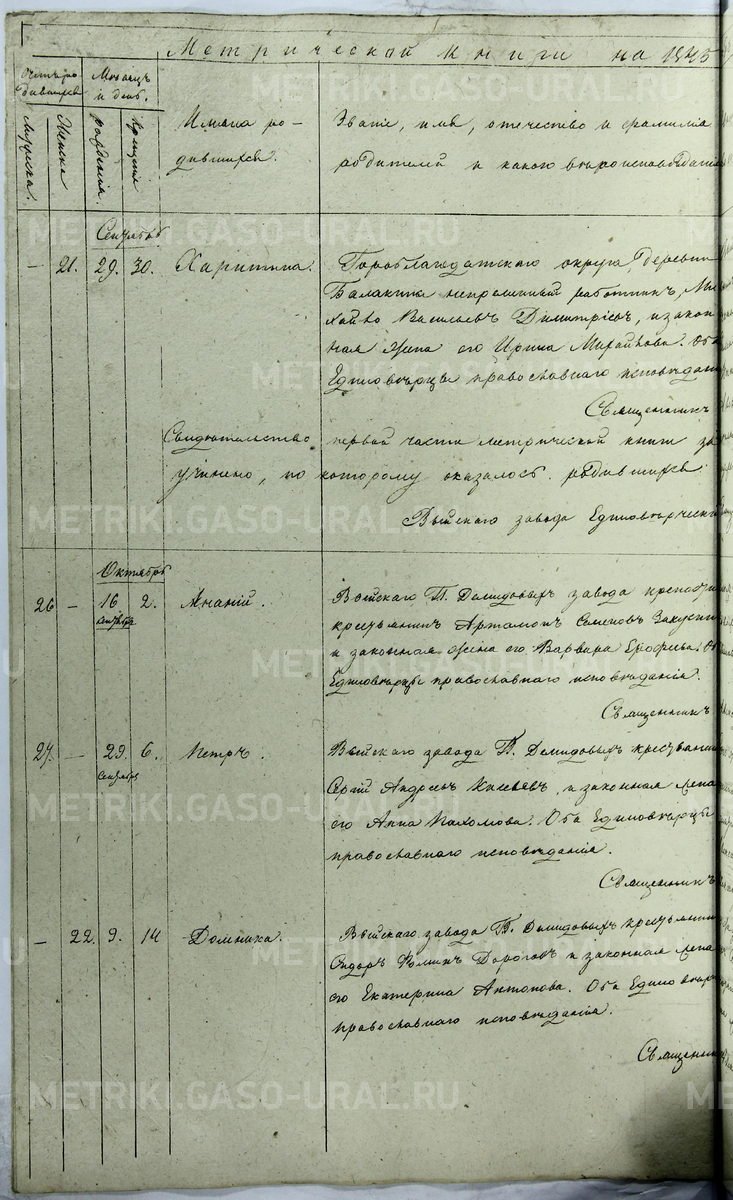 Метрической книги на 1845
Счетъ родившихся
Мужеска.
Женска
Месяцъ и день.
рожденія.
крещенія
Имена ро-
дившихся.
Званіе, имя, отечество и фамилія
родителей и какого вероисповеданія
Сентябрь
— 21. 29. 30. Харитина.
Гороблагодатского округа, деревни
Балакина непременный работникъ, Ми
хайло Васильевъ Димитріевъ, и закон
ная жена его Ирина Михайлова. Оба
Единоверцы православнаго исповеданія
Священникъ
Свидетельство первой части метрической книги за
учинено, по которому оказалось родившихся
Выйскаго завода Единоверческой
Октябрь
26 — 16 сентября 2. Ананій.
Выйскаго Г. Демидовыхъ завода
крестьянинъ Артамонъ Семеновъ
и законная жена его Варвара Ерофеева. Оба
Единоверцы православнаго исповеданія.
Священникъ
27. — 29. сентября 6. Петръ.
Выйскаго завода Г. Демидовыхъ крестьянинъ
Сергій Андреевъ и законная жена
его Анна Пахомова. Оба Единоверцы
православнаго исповеданія.
Священникъ
— 22. 9. 14 Домника.
Выйскаго завода Г. Демидовыхъ крестьянинъ
Сидоръ Фоминъ Дороговъ и законная жена
его Екатерина Антонова. Оба Единоверцы
православнаго исповеданія.
Священникъ
METRIKI.GASO-URAL.RU